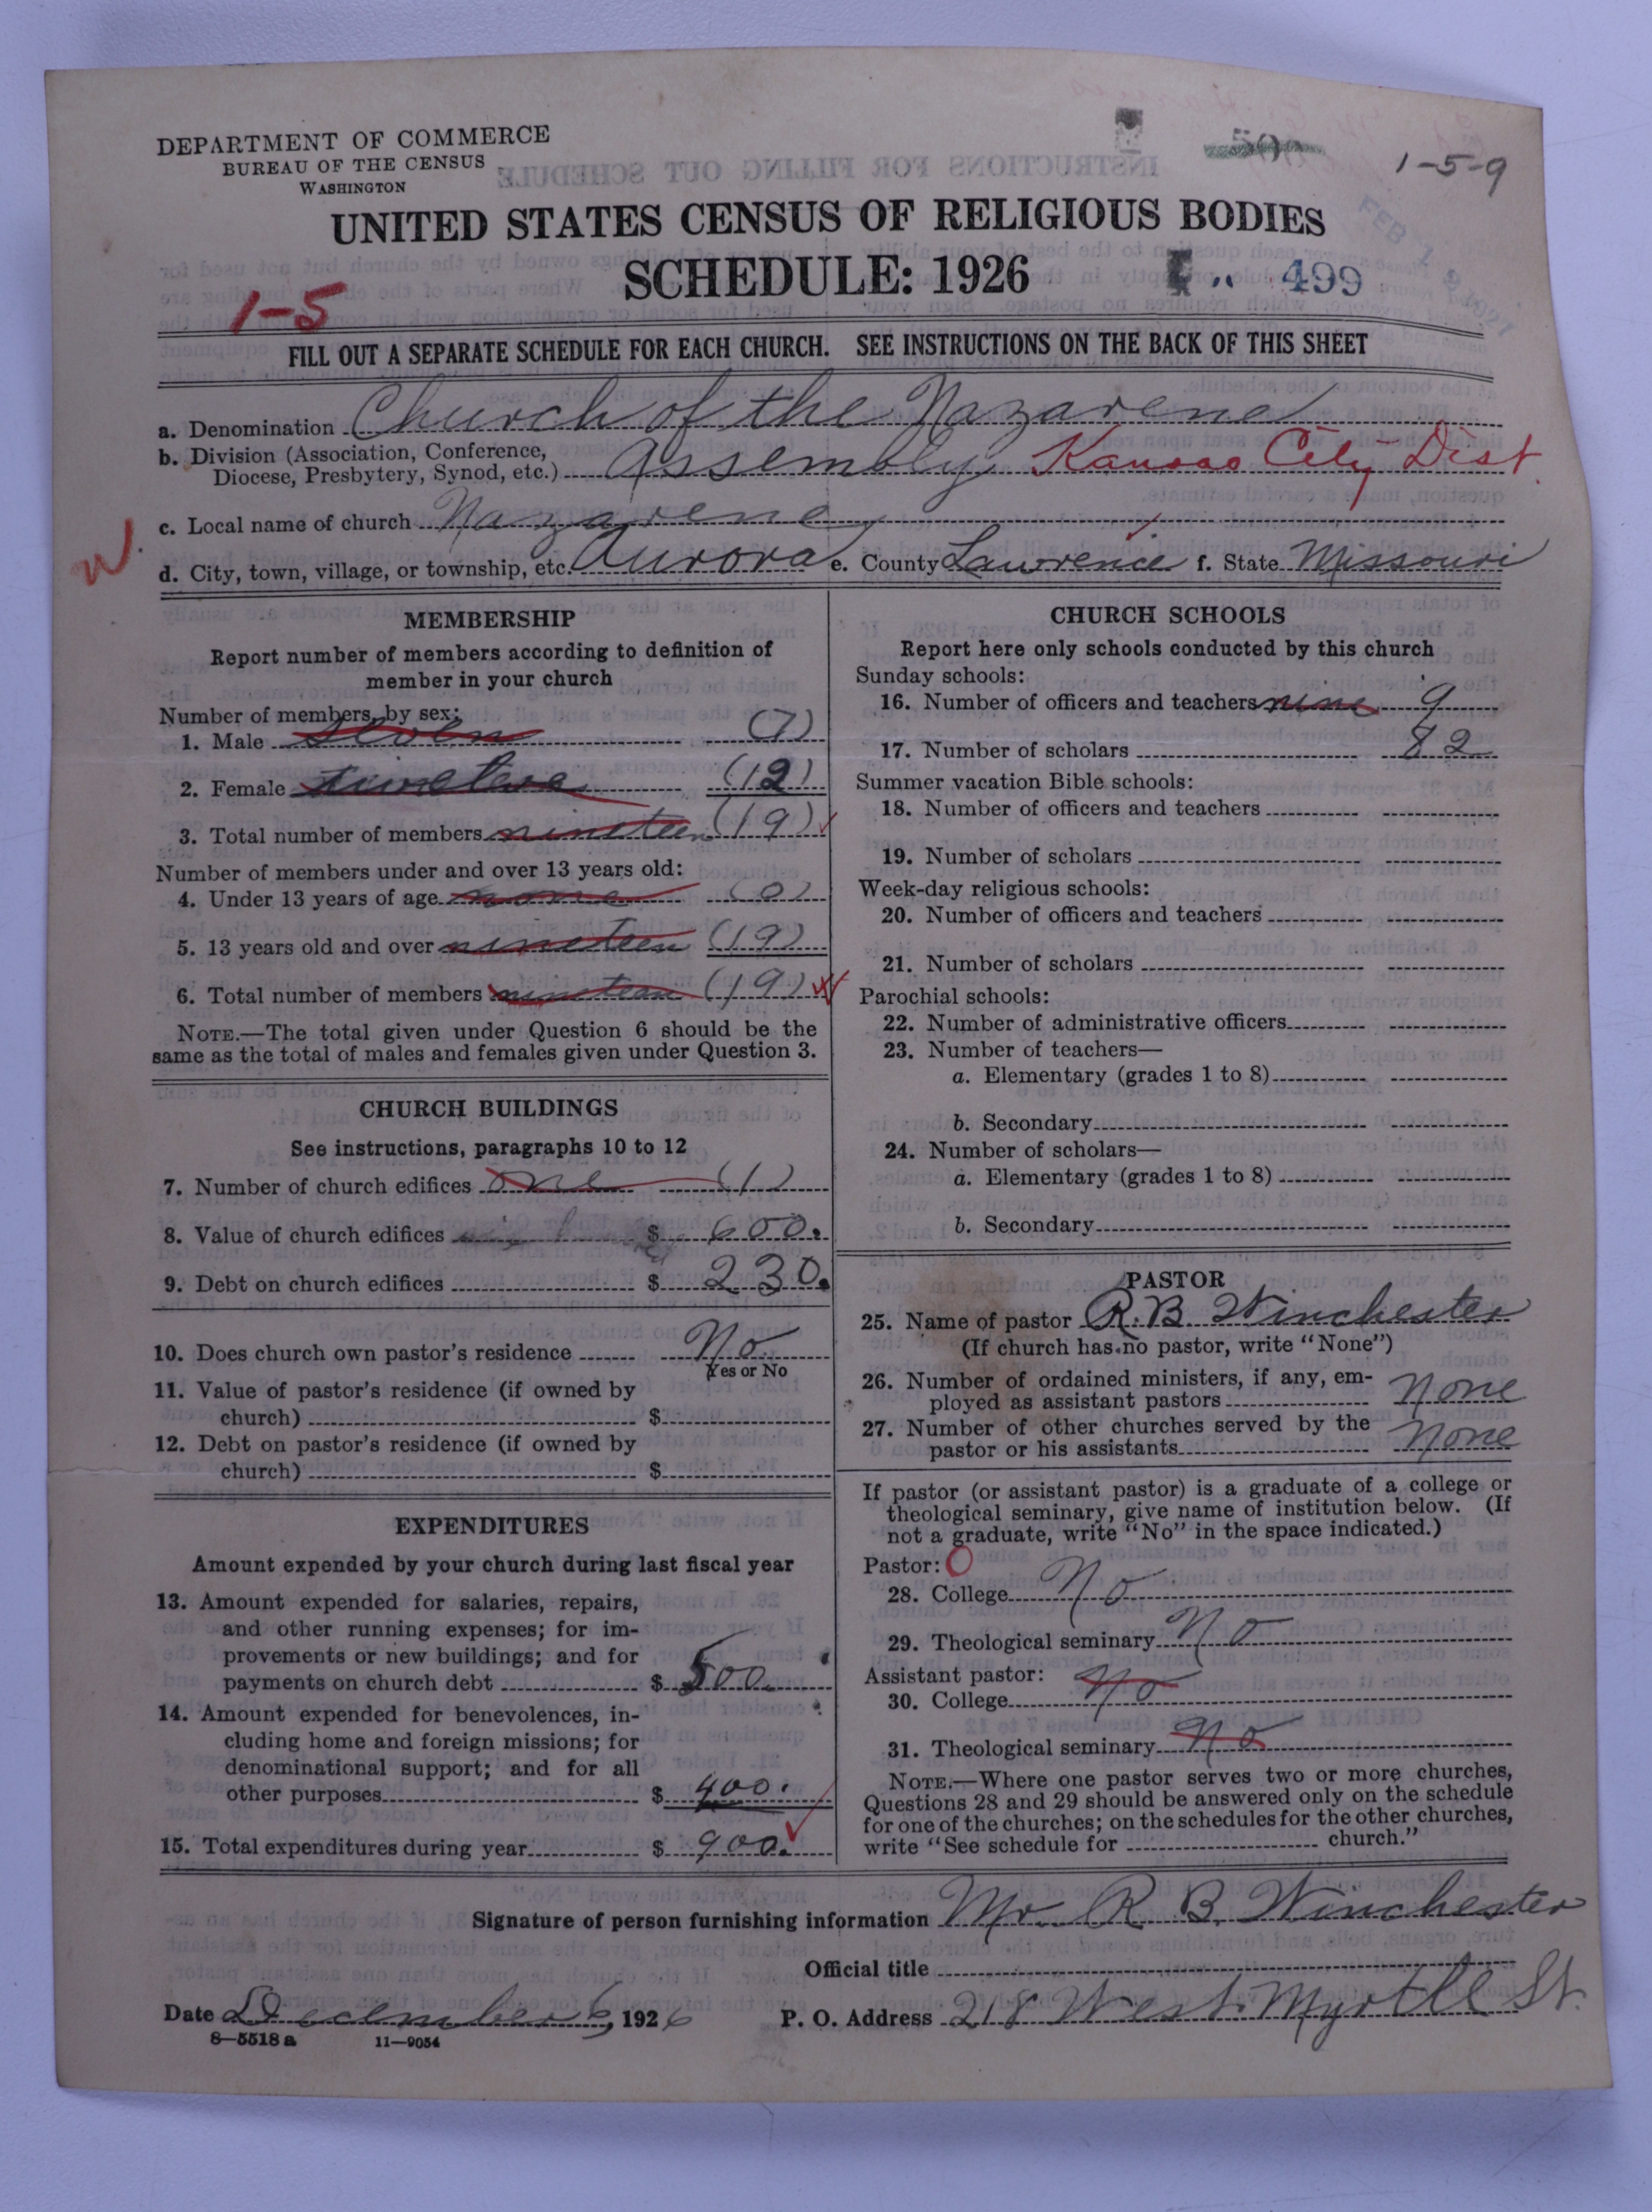 DEPARTMENT OF COMMERCE
BUREAU OF THE CENSUS
WASHINGTON
1-5-9
UNITED STATES CENSUS OF RELIGIOUS BODIES
SCHEDULE: 1926
499
FEB 1 1927
1-5
FILL OUT A SEPARATE SCHEDULE FOR EACH CHURCH. SEE INSTRUCTIONS ON THE BACK OF THIS SHEET
a. Denomination Church of the Nazarene
b. Division (Association, Conference,
Diocese, Presbytery, Synod, etc.) Assembly Kansas City Dist.
c. Local name of church Nazarene
W.
d. City, town, village, or township, etc. Aurora e. County Lawrence f. State Missouri
MEMBERSHIP
Report number of members according to definition of
member in your church
Number of members, by sex:
1. Male seven (7)
2. Female twelve (12)
3. Total number of members nineteen (19)
Number of members under and over 13 years old:
4. Under 13 years of age none (0)
5. 13 years old and over nineteen (19)
6. Total number of members nineteen (19)
NOTE.—The total given under Question 6 should be the
same as the total of males and females given under Question 3.
CHURCH BUILDINGS
See instructions, paragraphs 10 to 12
7. Number of church edifices one (1)
8. Value of church edifices $ 600.
9. Debt on church edifices $ 230.
10. Does church own pastor's residence No
Yes or No
11. Value of pastor's residence (if owned by
church) $
12. Debt on pastor's residence (if owned by
church) $
EXPENDITURES
Amount expended by your church during last fiscal year
13. Amount expended for salaries, repairs,
and other running expenses; for im-
provements or new buildings; and for
payments on church debt $ 500.
14. Amount expended for benevolences, in-
cluding home and foreign missions; for
denominational support; and for all
other purposes $ 400.
15. Total expenditures during year $ 900.
CHURCH SCHOOLS
Report here only schools conducted by this church
Sunday schools:
16. Number of officers and teachers nine 9
17. Number of scholars 82
Summer vacation Bible schools:
18. Number of officers and teachers
19. Number of scholars
Week-day religious schools:
20. Number of officers and teachers
21. Number of scholars
Parochial schools:
22. Number of administrative officers
23. Number of teachers—
a. Elementary (grades 1 to 8)
b. Secondary
24. Number of scholars—
a. Elementary (grades 1 to 8)
b. Secondary
PASTOR
25. Name of pastor R. B. Winchester
(If church has no pastor, write "None")
26. Number of ordained ministers, if any, em-
ployed as assistant pastors none
27. Number of other churches served by the
pastor or his assistants none
If pastor (or assistant pastor) is a graduate of a college or
theological seminary, give name of institution below. (If
not a graduate, write "No" in the space indicated.)
Pastor: O
28. College No
29. Theological seminary No
Assistant pastor:
30. College No
31. Theological seminary No
NOTE.—Where one pastor serves two or more churches,
Questions 28 and 29 should be answered only on the schedule
for one of the churches; on the schedules for the other churches,
write "See schedule for church."
Signature of person furnishing information Mr. R. B. Winchester
Official title
Date December 6, 1926 P. O. Address 218 West Myrtle St.
8—5518 a 11—9054